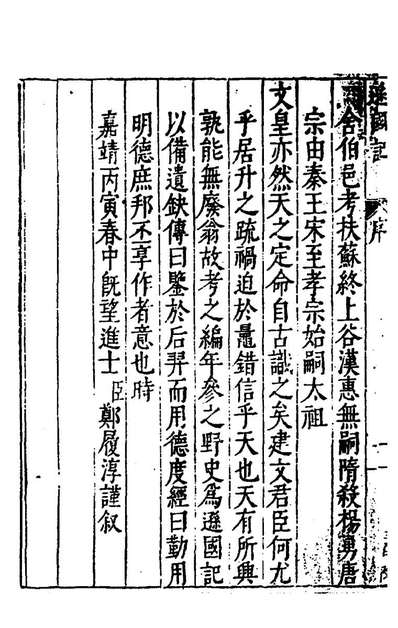 遜國記
序
舍伯邑考扶蘇終上谷漢惠無嗣隋殺楊勇唐
宗由秦王宋至孝宗始嗣太祖
文皇亦然天之定命自古識之矣建文君臣何尤
乎居升之疏禍迫於鼂錯信乎天也天有所興
孰能無廢翁故考之編年參之野史爲遜國記
以備遺缺傳曰鑒於后羿而用德度經曰勤用
明德庶邦丕享作者意也時
嘉靖丙寅春中旣望進士臣鄭履淳謹叙